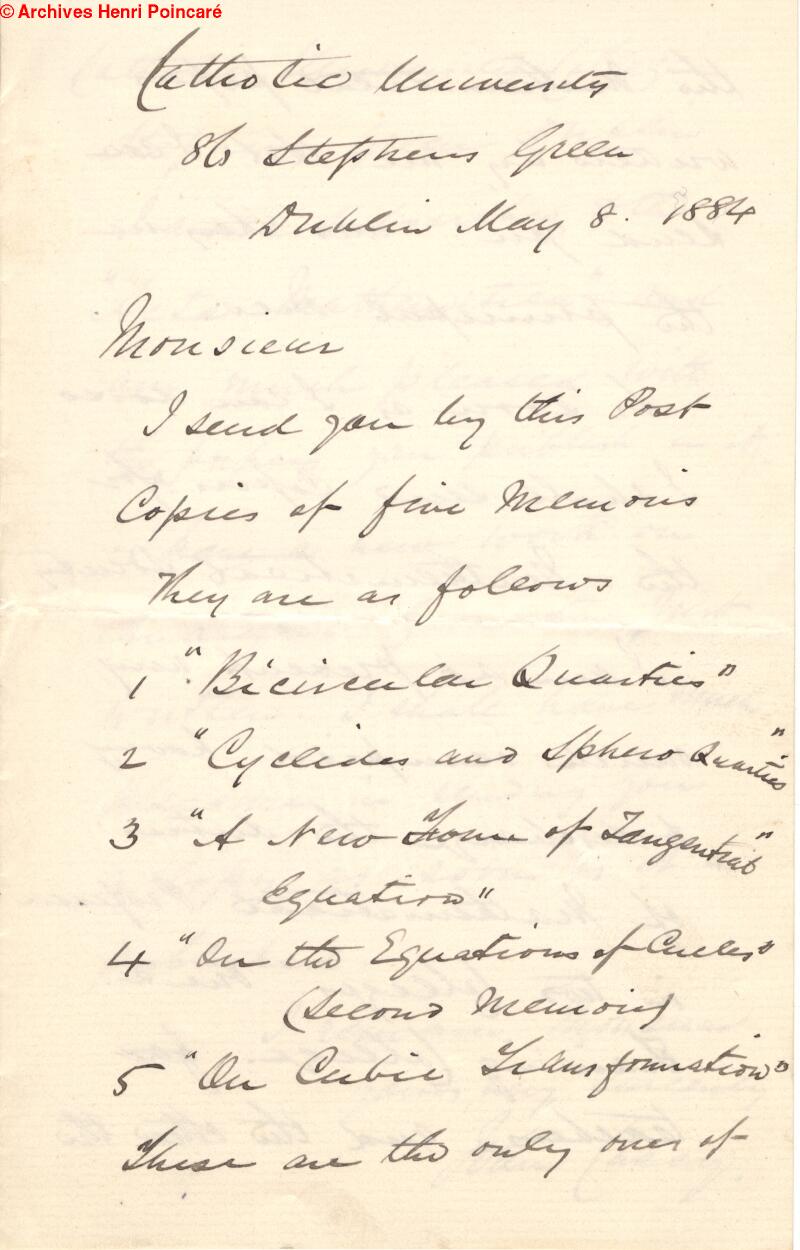 © Archives Henri Poincaré
Catholic University
86 Stephens Green
Dublin May 8. 1884
Monsieur
I send you by this Post
Copies of five Memoirs
They are as follows
1 "Bicircular Quartics"
2 "Cyclides and Sphero Quartics"
3 "A New Form of Tangential"
Equation"
4 "On the Equations of Circles"
(Second Memoir)
5 "On Cubic Transformation"
These are the only ones of